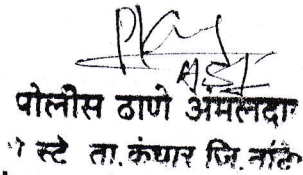 पोलीस ठाणे अंमलदा
स्टे ता. कंधार जि. नांदे